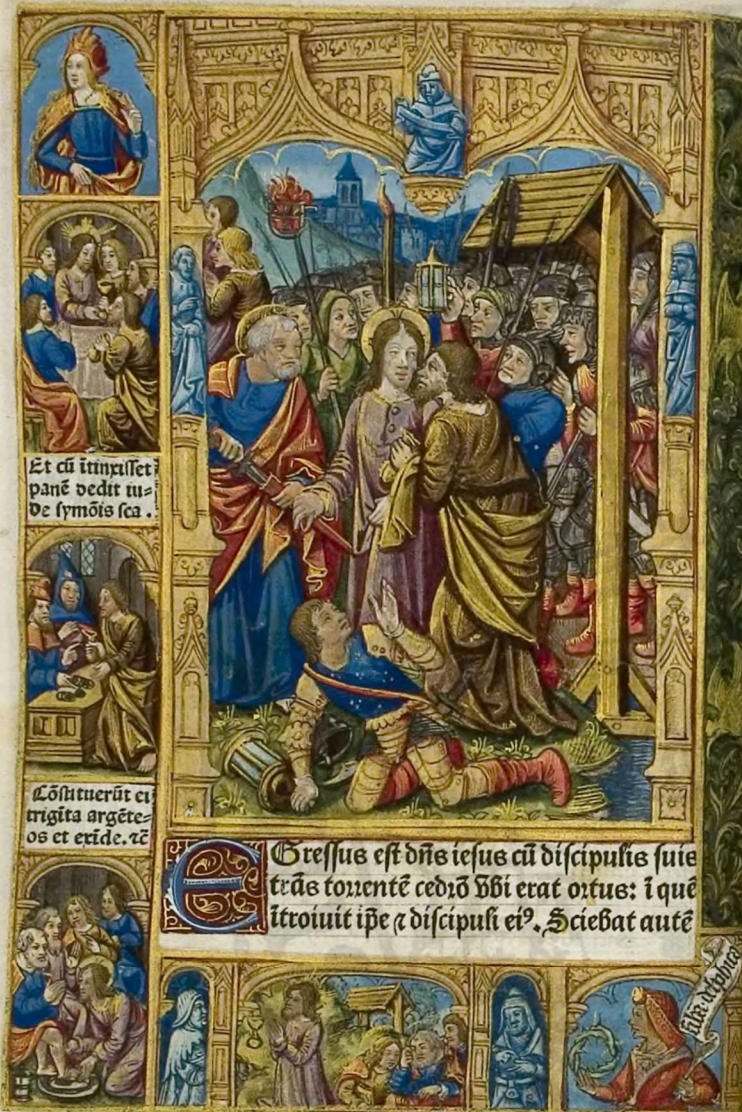 Et cū ītinxisset
panē dedit iu=
de symōis sca .
Cōstituerūt ei
trigīta argēte=
os et exīde. ⁊c̄
EGressus est dn̄s iesus cū discipulis suis
trās torrentē cedrō Vbi erat ortus: ī quē
ītroiuit ip̄e ⁊ discipuli eiꝰ. Sciebat autē
delphica